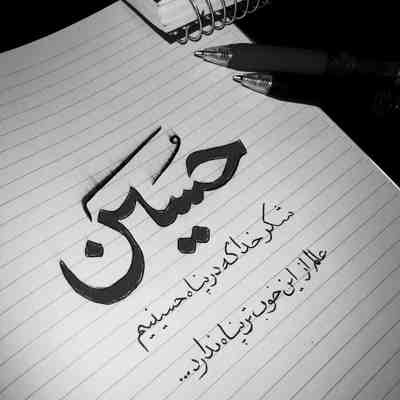 حسین
شکر خدا که در پناه حسینیم
عالم از این خوب تر پناه ندارد...